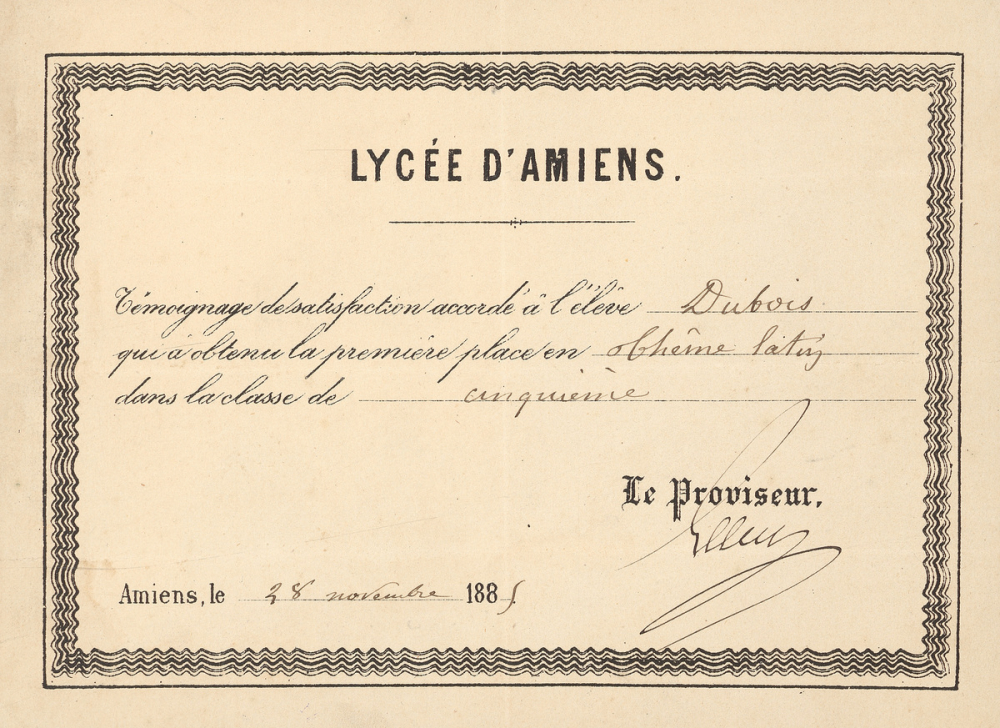 LYCÉE D'AMIENS.
Témoignage de satisfaction accordé à l'élève Dubois
qui a obtenu la première place en thème latin
dans la classe de cinquième
Le Proviseur.
Amiens, le 28 novembre 1885